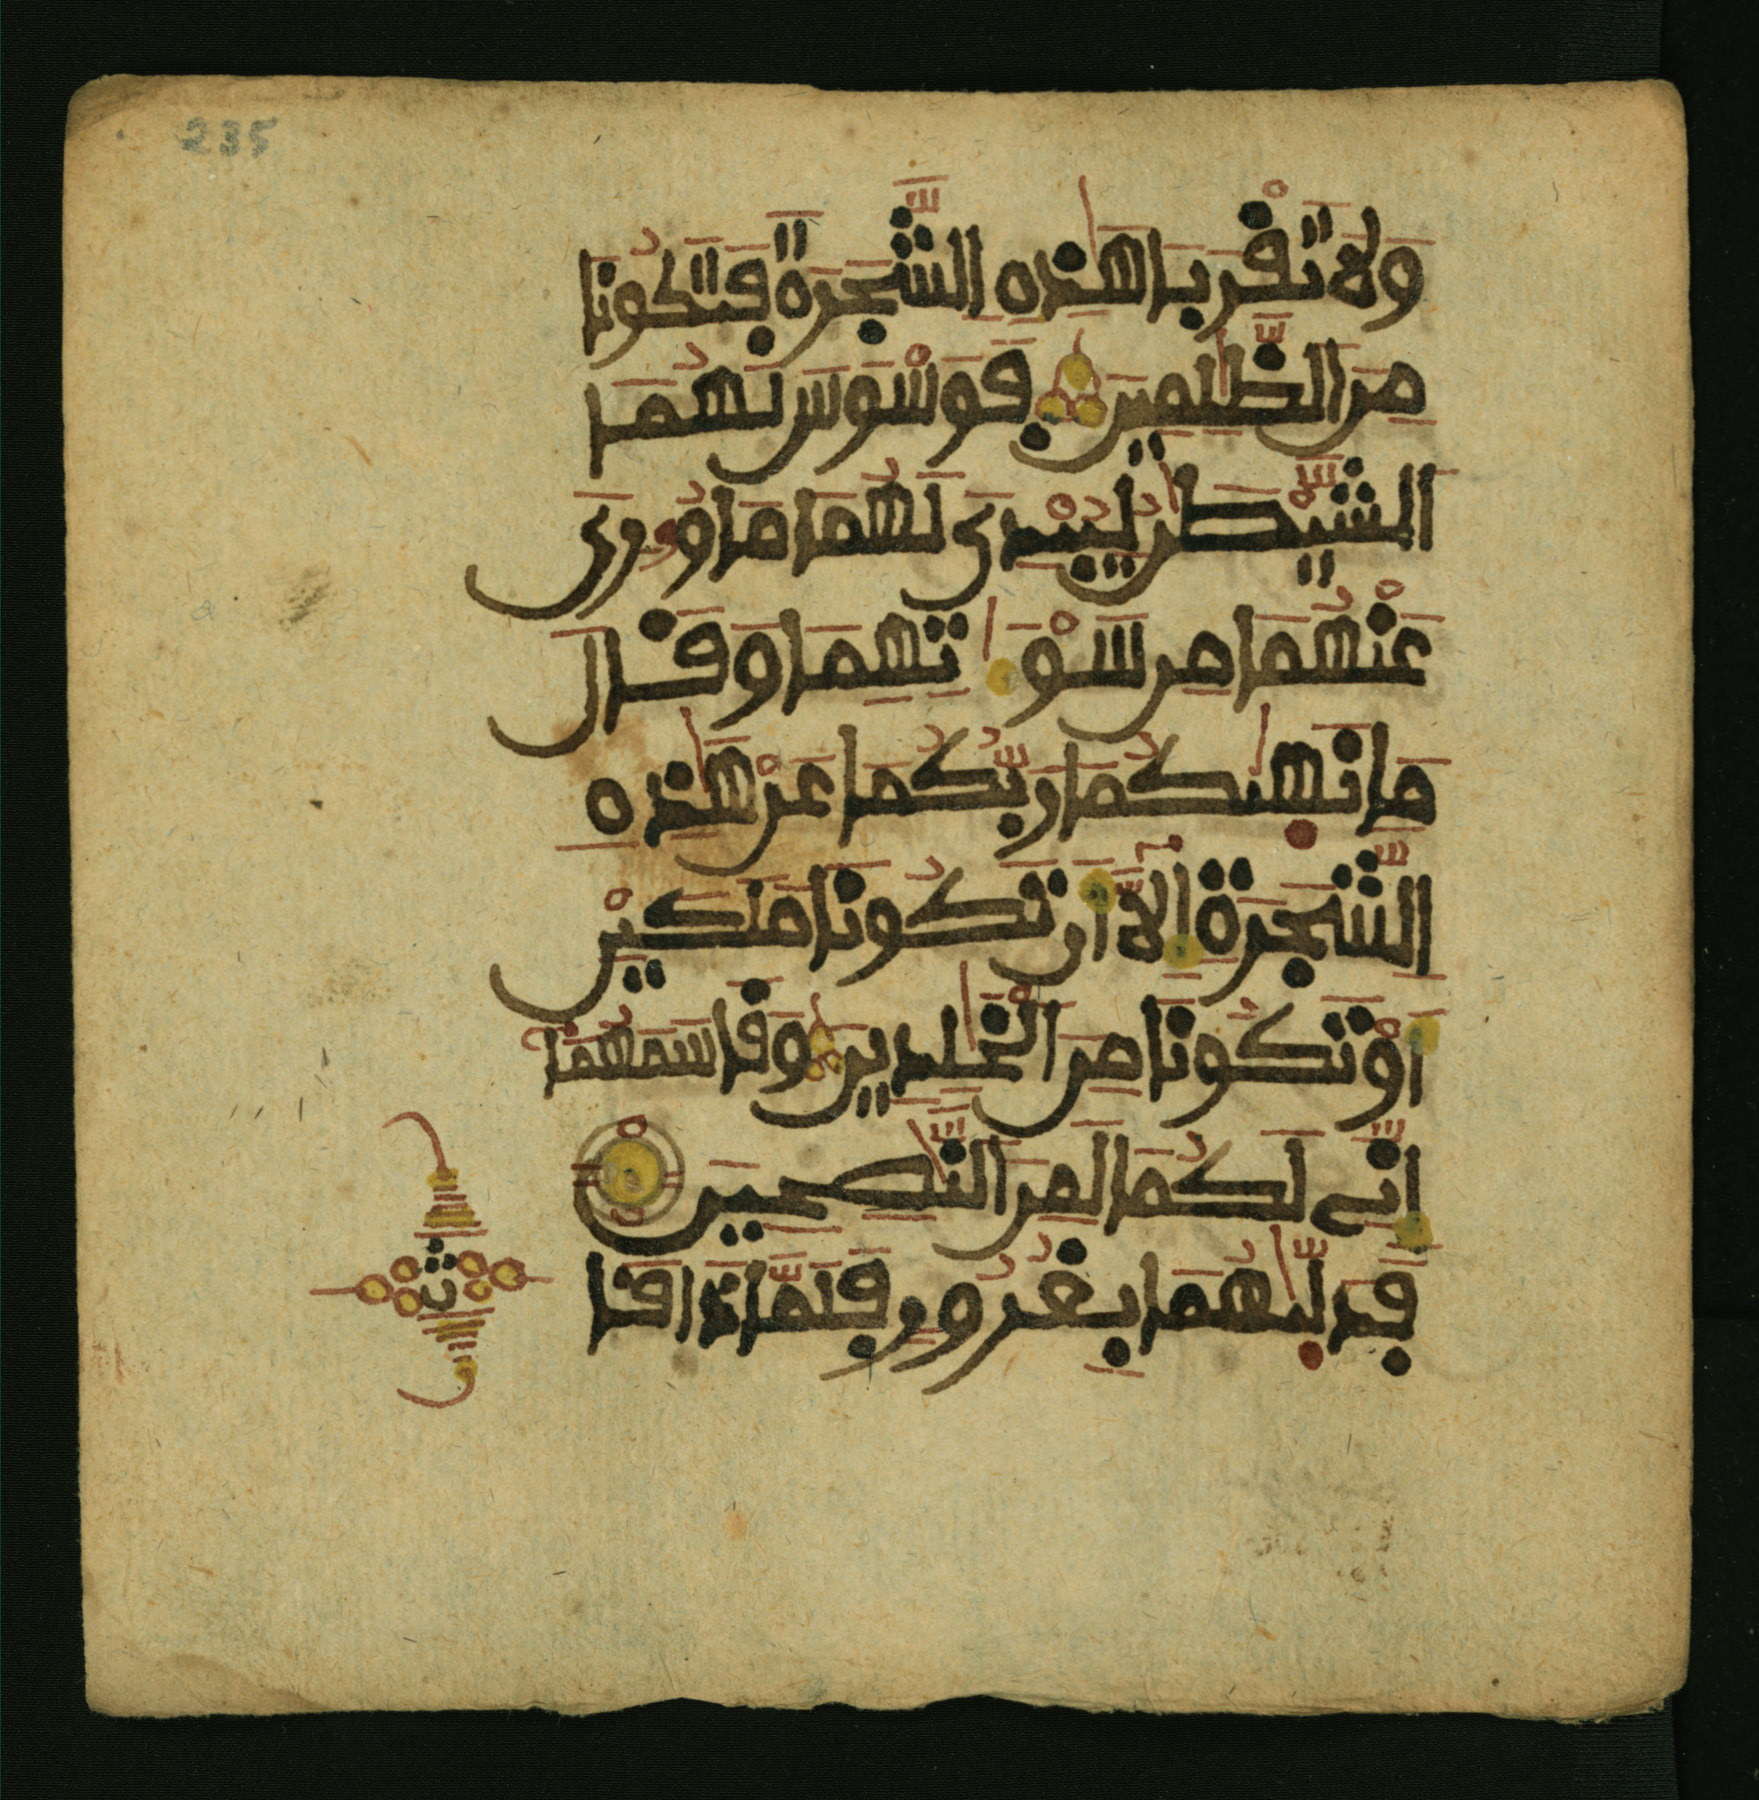 235
وَلَا تَقْرَبَا هَٰذِهِ الشَّجَرَةَ فَتَكُونَا
مِنَ الظَّٰلِمِينَ فَوَسْوَسَ لَهُمَا
الشَّيْطَٰنُ لِيُبْدِىَ لَهُمَا مَا وُۥرِىَ
عَنْهُمَا مِن سَوْءَٰتِهِمَا وَقَالَ
مَا نَهَىٰكُمَا رَبُّكُمَا عَنْ هَٰذِهِ
الشَّجَرَةِ إِلَّا أَن تَكُونَا مَلَكَيْنِ
أَوْ تَكُونَا مِنَ الْخَٰلِدِينَ وَقَاسَمَهُمَا
إِنِّے لَكُمَا لَمِنَ النَّٰصِحِينَ
فَدَلَّىٰهُمَا بِغُرُورٍ فَلَمَّا ذَاقَا
ث